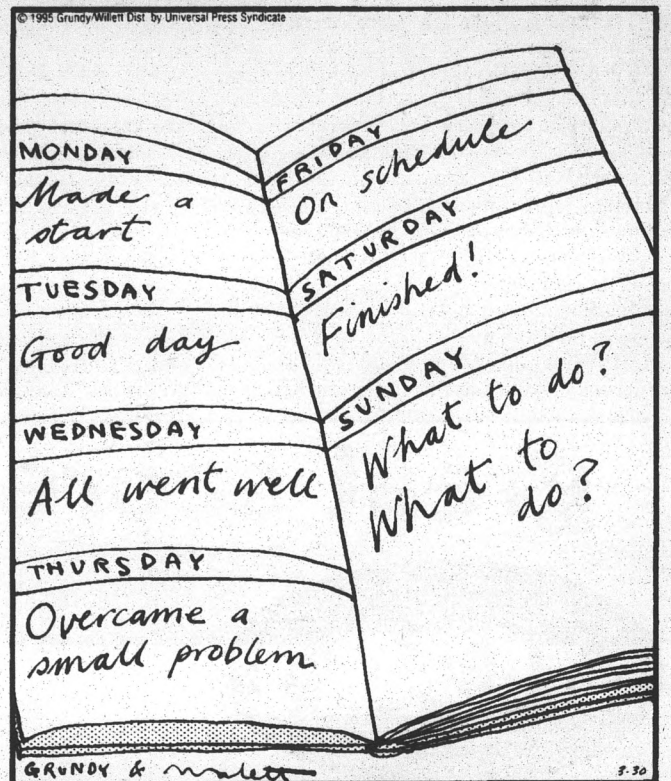 © 1995 Grundy/Willett Dist. by Universal Press Syndicate
MONDAY
Made a
start
TUESDAY
Good day
WEDNESDAY
All went well
THURSDAY
Overcame a
small problem
FRIDAY
On schedule
SATURDAY
Finished!
SUNDAY
What to do?
What to
do?
GRUNDY &
3-30